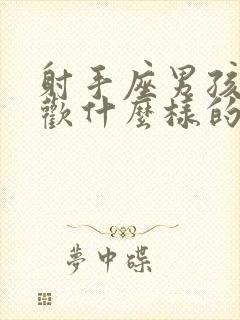 射手座男孩
歡什麼樣的
夢中碟